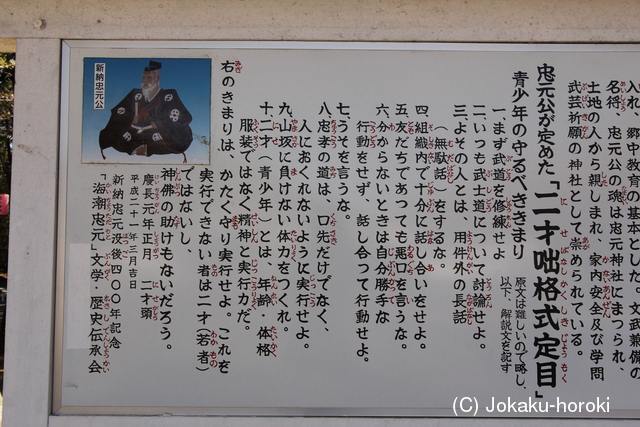 入れ、郷中教育の基本とした。文武兼備の
名将、忠元公の魂は忠元神社にまつられ、
土地の人から親しまれ、家内安全及び学問
武芸祈願の神社として崇められている。
忠元公が定めた「二才咄格式定目」
青少年の守るべききまり
原文は難しいので略し、
以下、解説文を記す
一、まず武道を修練せよ
二、いつも武士道について討論せよ。
三、よその人とは、用件外の長話
(無駄話)をするな。
四、組織内で十分に話しあいをせよ。
五、友だちであっても悪口を言うな。
六、分からないときは自分勝手な
行動をせず、話し合って行動せよ。
七、うそを言うな。
八、忠孝の道は、口先だけでなく、
人におくれないように実行せよ。
九、山坂に負けない体力をつくれ。
十、二才(青少年)とは、年齢、体格
服装ではなく精神と実行力だ。
右のきまりは、かたく守り実行せよ。これを
実行できない者は二才(若者)
ではないし、
神佛の助けもないだろう。
慶長元年正月 二才頭
平成二十一年三月吉日
新納忠元没後四〇〇年記念
「海潮忠元」文学・歴史伝承会
新納忠元公
(C) Jokaku-horoki